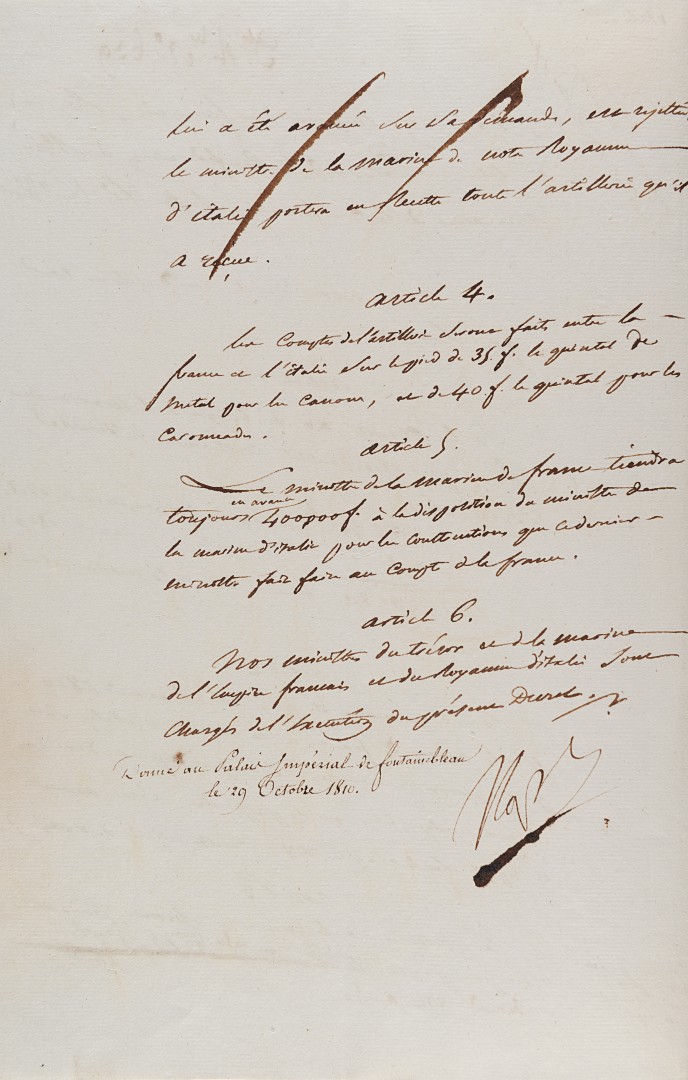 lui a été avancée sur sa demande, est rejettée
le ministre de la marine de notre Royaume
d'italie portera en Recette toute l'artillerie qu'il
a reçue.
article 4.
Les Comptes de l'artillerie seront faits entre la
france et l'italie sur le pied de 35. f. le quintal de
metal pour les canons, et de 40 f. le quintal pour les
Caronades.
article 5.
Le ministre de la marine de france tiendra
en avance
toujours 400000 f. à la disposition du ministre de
la marine d'italie pour les constructions que ce dernier
ministre fait faire au Compte de la france.
article 6.
Nos ministres du trésor et de la marine
de l'Empire français et du Royaume d'italie sont
Chargés de l'Exécution du présent Decret.
Donné au Palais Impérial de fontainebleau
le 29 Octobre 1810.
Nap